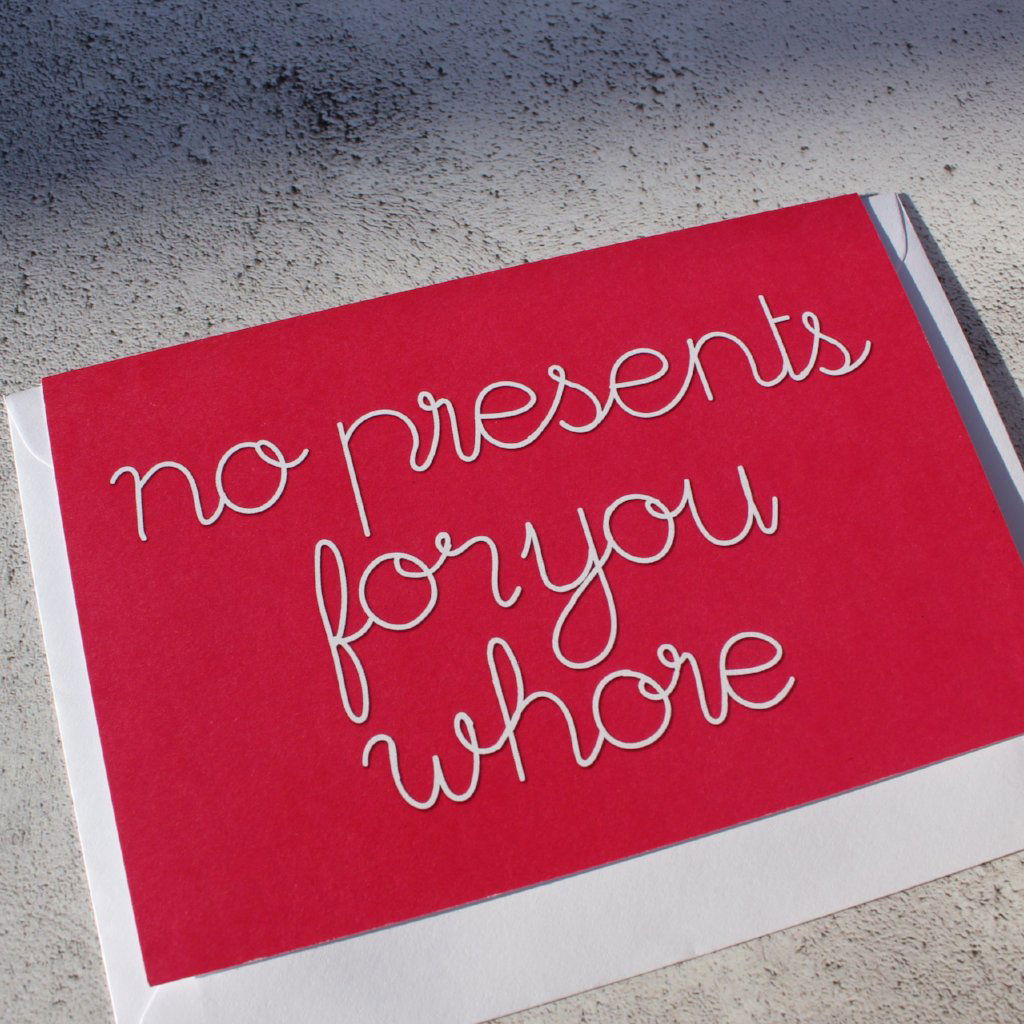 no presents
for you
whore